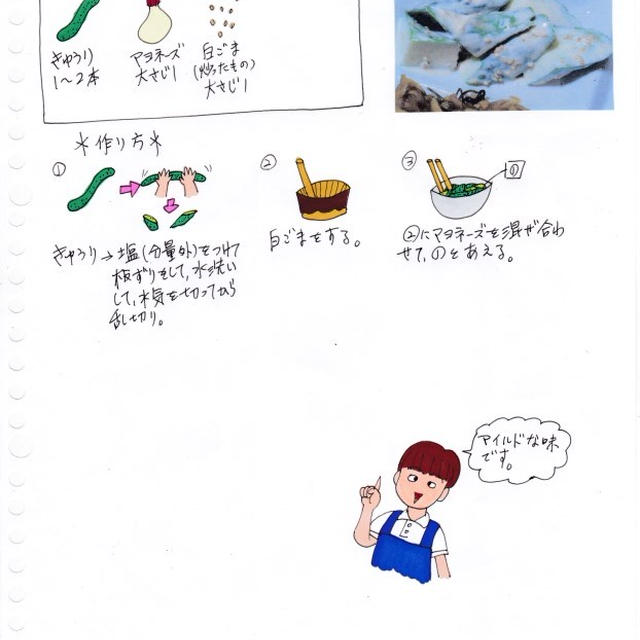 きゅうり
1〜2本
マヨネーズ
大さじ1
白ごま
(炒ったもの)
大さじ1
*作り方*
①
きゅうり→塩(分量外)をつけて
板ずりをして,水洗い
して,水気を切ってから
乱切り。
②
白ごまをする。
③
①
②にマヨネーズを混ぜ合わ
せて,①とあえる。
マイルドな味
です。